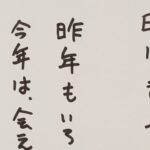 昨年もいろ
今年は、会え